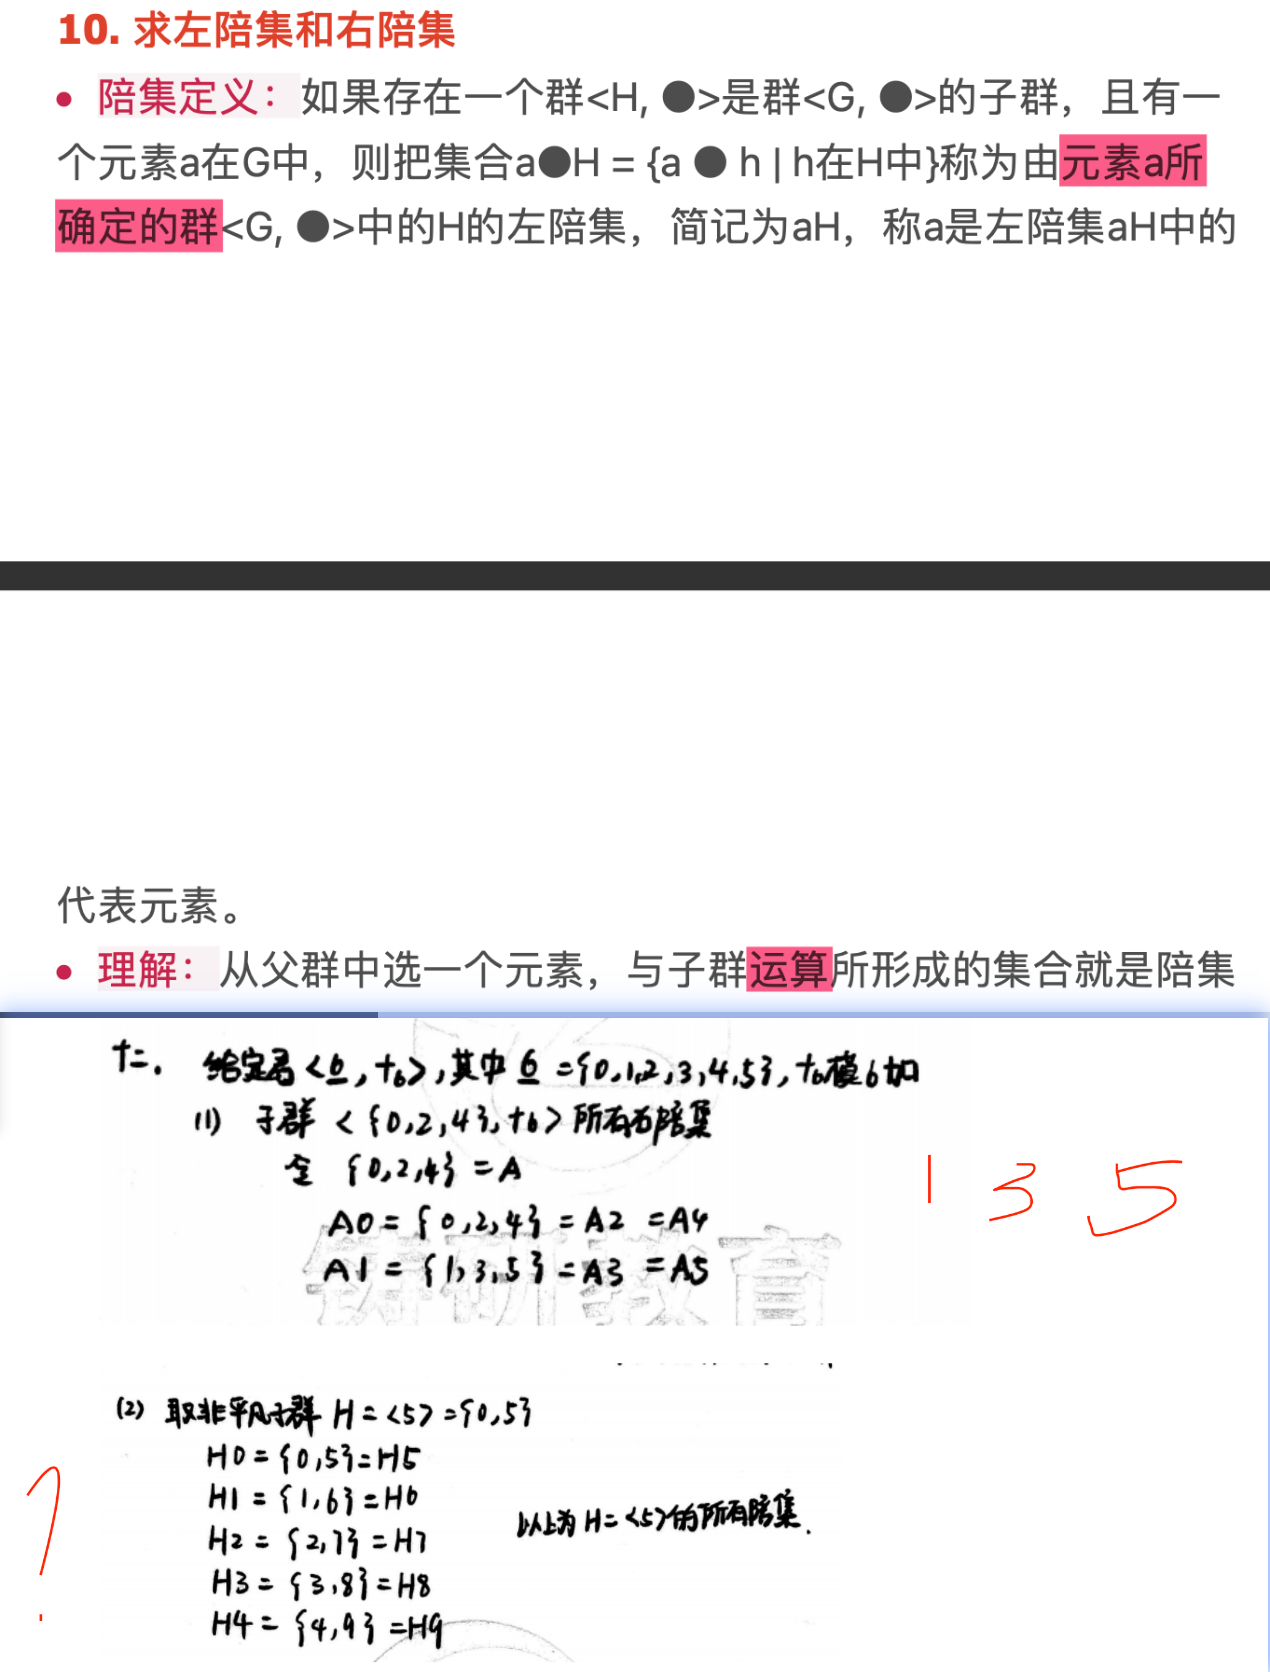 10. 求左陪集和右陪集
• 陪集定义：如果存在一个群<H, ●>是群<G, ●>的子群，且有一
个元素a在G中，则把集合a●H = {a ● h | h在H中}称为由元素a所
确定的群<G, ●>中的H的左陪集，简记为aH，称a是左陪集aH中的
代表元素。
• 理解：从父群中选一个元素，与子群运算所形成的集合就是陪集
十二. 给定群<6, +6>, 其中 6 = {0,1,2,3,4,5}, +6模6加
(1) 子群 < {0,2,4}, +6 > 所有右陪集
令 {0,2,4} = A
A0 = {0,2,4} = A2 = A4
A1 = {1,3,5} = A3 = A5
1 3 5
铸研教育
(2) 取非平凡子群 H = <5> = {0,5}
H0 = {0,5} = H5
H1 = {1,6} = H6
H2 = {2,7} = H7
H3 = {3,8} = H8
H4 = {4,9} = H9
以上为 H = <5>的所有陪集.